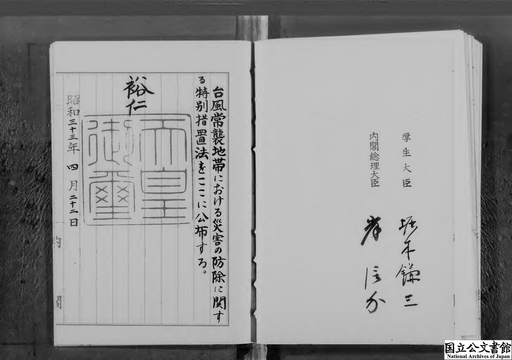 厚生大臣
堀木鎌三
内閣総理大臣
岸信介
台風常襲地帯における災害の防除に関す
る特別措置法をここに公布する。
裕仁
天皇
御璽
昭和三十三年四月二十二日
内閣
国立公文書館
National Archives of Japan